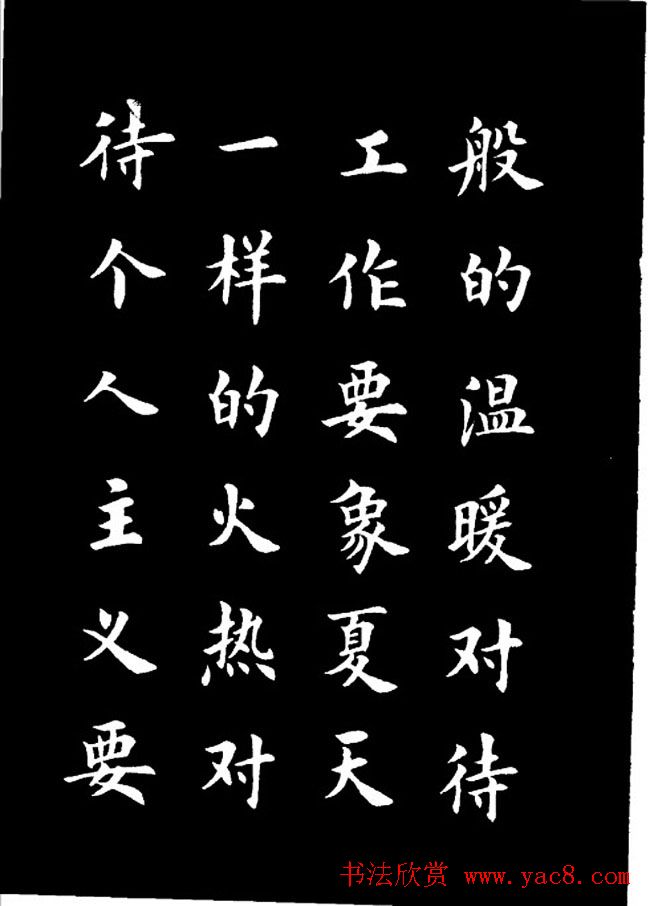 般的温暖对待
工作要象夏天
一样的火热对
待个人主义要
书法欣赏 www.yac8.com